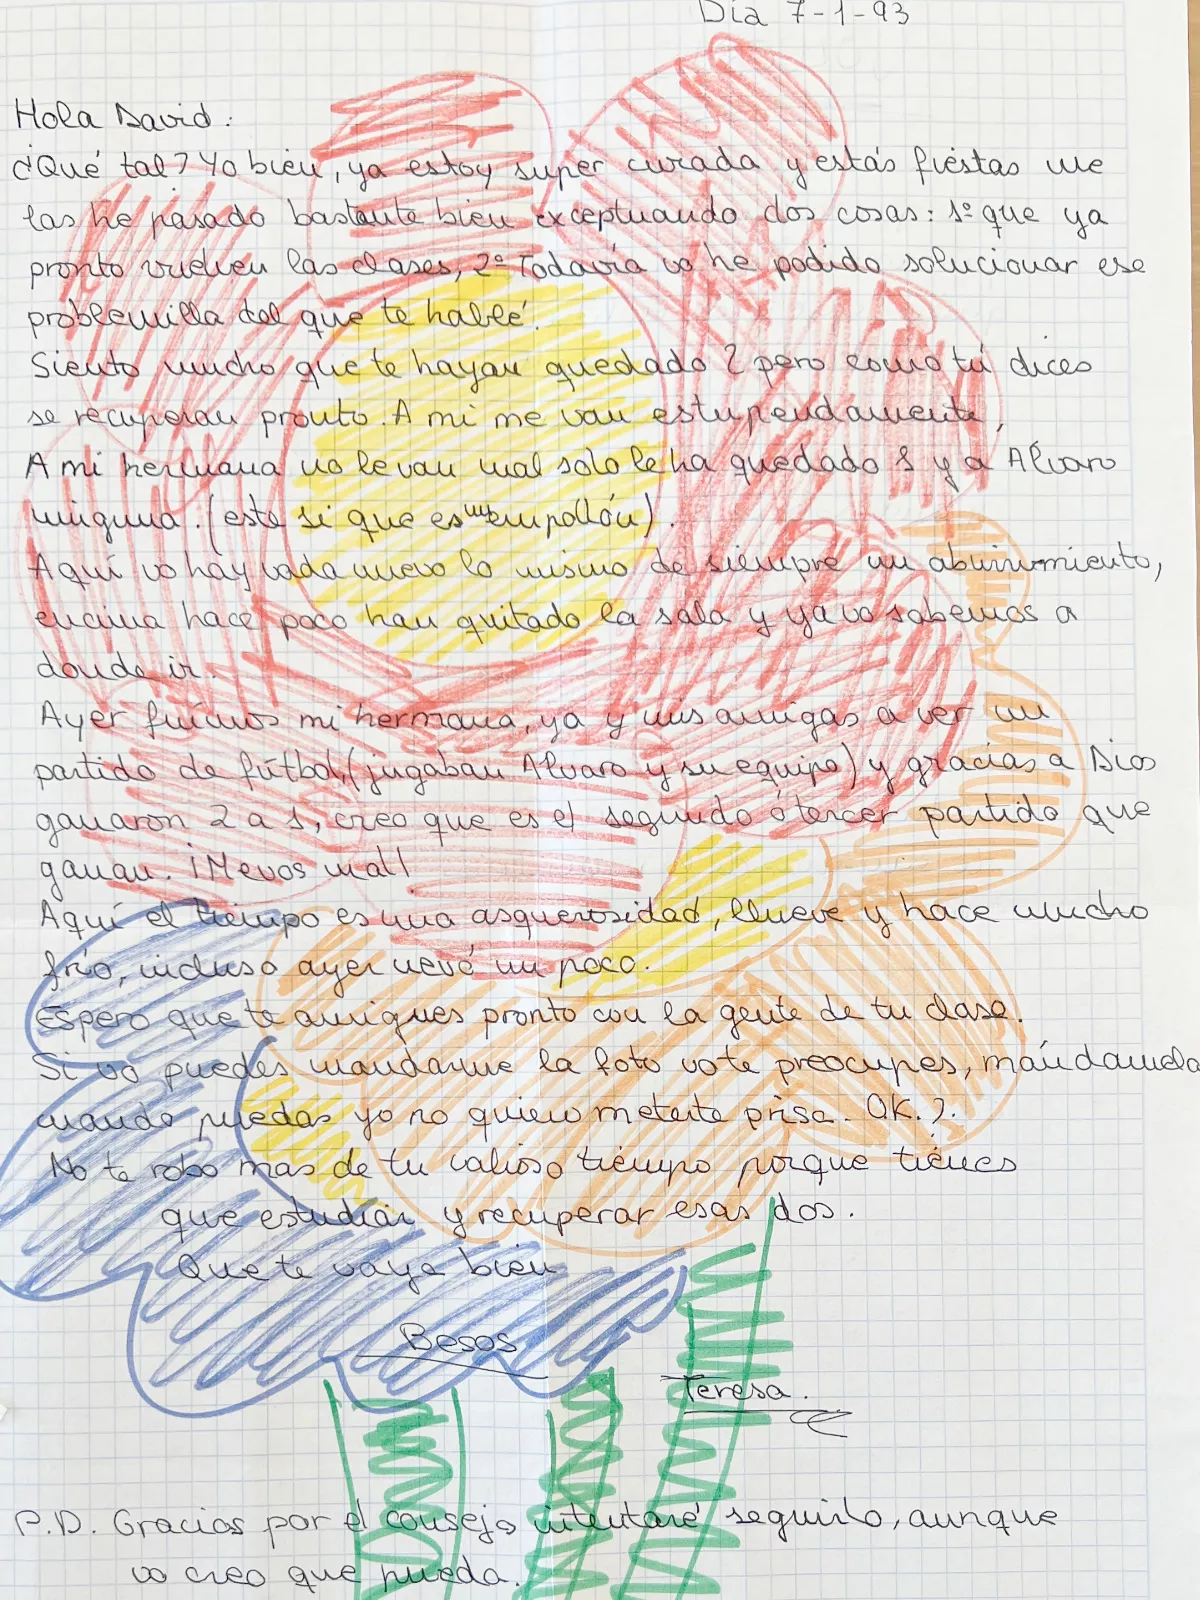 Dia 7-1-93
Hola David:
¿Qué tal? Yo bien, ya estoy super curada y estás fiestas me
las he pasado bastante bien exceptuando dos cosas: 1º que ya
pronto vuelven las clases, 2º Todavía no he podido solucionar ese
problemilla del que te hablé.
Siento mucho que te hayan quedado 2 pero como tú dices
se recuperan pronto. A mi me van estupendamente,
A mi hermana no le van mal solo le ha quedado 1 y a Alvaro
ninguna. (este si que es un empollón).
Aquí no hay nada nuevo lo mismo de siempre un aburrimiento,
encima hace poco han quitado la sala y ya no sabemos a
donde ir.
Ayer fuimos mi hermana, yo y mis amigas a ver un
partido de fútbol, (jugaban Alvaro y su equipo) y gracias a Dios
ganaron 2 a 1, creo que es el segundo ó tercer partido que
ganan. ¡Menos mal!
Aquí el tiempo es una asquerosidad, llueve y hace mucho
frío, incluso ayer nevó un poco.
Espero que te amigues pronto con la gente de tu clase.
Si no puedes mandarme la foto no te preocupes, mándamela
cuando puedas yo no quiero meterte prisa. O.K.?.
No te robo mas de tu valioso tiempo porque tienes
que estudiar y recuperar esas dos.
Que te vaya bien
Besos
Teresa.
P.D. Gracias por el consejo intentaré seguirlo, aunque
no creo que pueda.